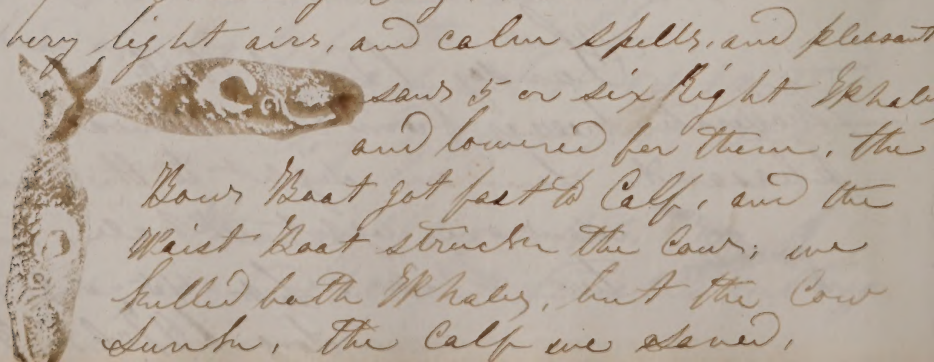 very light airs, and calm spells, and pleasant
saw 5 or six Right Whales
and lowered for them, the
Bow Boat got fast to Calf, and the
Waist Boat struck the Cow; we
killed both Whales, but the Cow
Sunk, the Calf we saved,